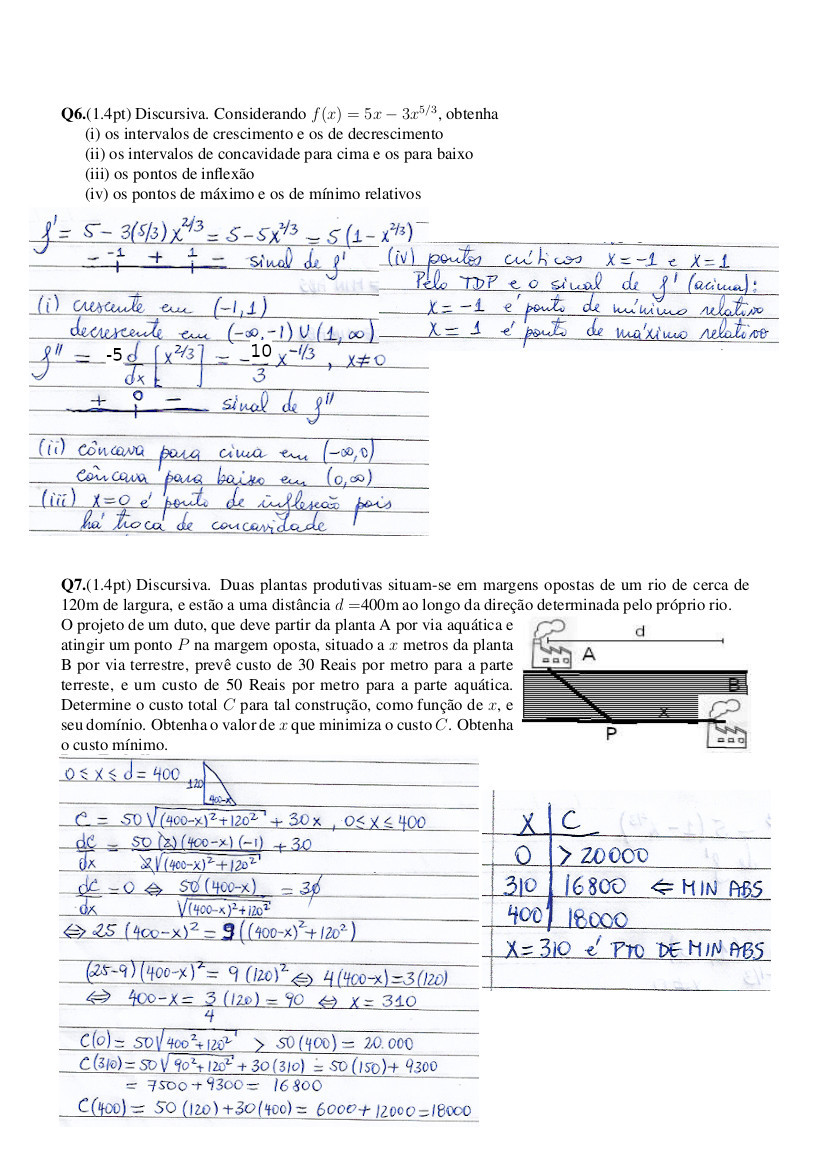 Q6.(1.4pt) Discursiva. Considerando f(x) = 5x − 3x^{5/3}, obtenha
(i) os intervalos de crescimento e os de decrescimento
(ii) os intervalos de concavidade para cima e os para baixo
(iii) os pontos de inflexão
(iv) os pontos de máximo e os de mínimo relativos
f' = 5 − 3(5/3)x^{2/3} = 5 − 5x^{2/3} = 5(1 − x^{2/3})
− −1 + 1 − sinal de f'
(i) crescente em (−1,1)
decrescente em (−∞,−1) ∪ (1,∞)
f'' = -5 d/dx [x^{2/3}] = −10/3 x^{−1/3} , x≠0
+ 0 − sinal de f''
(ii) côncava para cima em (−∞,0)
côncava para baixo em (0,∞)
(iii) x=0 é ponto de inflexão pois
há troca de concavidade
(iv) pontos críticos x=−1 e x=1
Pelo TDP e o sinal de f' (acima):
x=−1 é ponto de mínimo relativo
x= 1 é ponto de máximo relativo
Q7.(1.4pt) Discursiva. Duas plantas produtivas situam-se em margens opostas de um rio de cerca de
120m de largura, e estão a uma distância d =400m ao longo da direção determinada pelo próprio rio.
O projeto de um duto, que deve partir da planta A por via aquática e
atingir um ponto P na margem oposta, situado a x metros da planta
B por via terrestre, prevê custo de 30 Reais por metro para a parte
terreste, e um custo de 50 Reais por metro para a parte aquática.
Determine o custo total C para tal construção, como função de x, e
seu domínio. Obtenha o valor de x que minimiza o custo C. Obtenha
o custo mínimo.
d
A
B
x
P
0 ≤ x ≤ d = 400
120
400-x
C = 50√((400−x)²+120²) + 30x , 0≤x≤400
dC/dx = 50(2)(400−x)(−1)/2√((400−x)²+120²) + 30
dC/dx = 0 ⇔ 50(400−x)/√((400−x)²+120²) = 30
⇔ 25(400−x)² = 9((400−x)²+120²)
(25−9)(400−x)² = 9(120)² ⇔ 4(400−x)=3(120)
⇔ 400−x = 3/4 (120) = 90 ⇔ x = 310
C(0) = 50√(400²+120²) > 50(400) = 20.000
C(310) = 50√(90²+120²) + 30(310) = 50(150)+ 9300
= 7500+9300 = 16800
C(400) = 50(120)+30(400) = 6000+12000=18000
X C
0 > 20000
310 16800 ⇐ MIN ABS
400 18000
X=310 é PTO DE MIN ABS